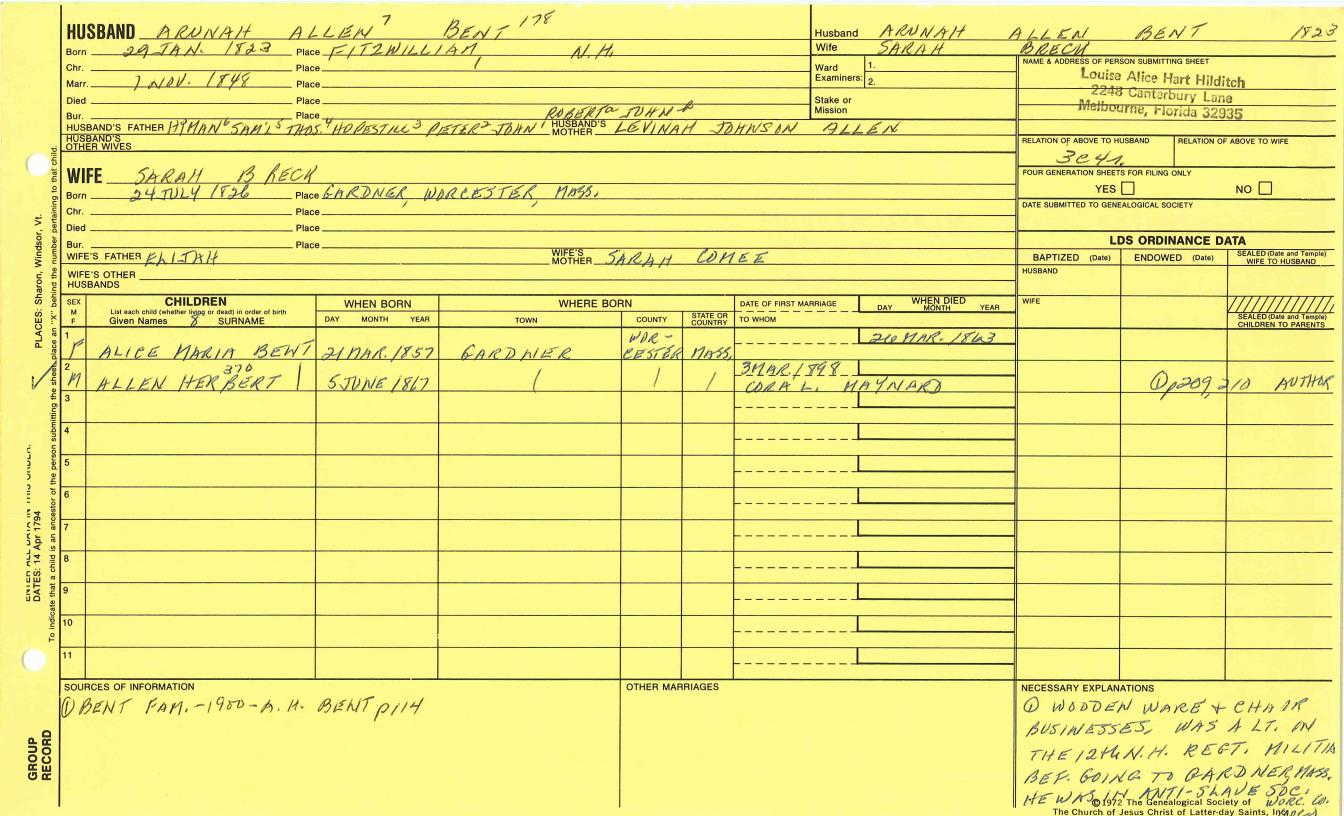 HUSBAND ARUNAH ALLEN 7 BENT 178
Born 29 JAN. 1823 Place FITZWILLIAM, N.H.
Chr. Place
Marr. 7 NOV. 1848 Place
Died Place
Bur. Place ROBERT a JOHN B
HUSBAND'S FATHER HYMAN 6 SAM'L 5 THOS. 4 HOPESTILL 3 PETER 2 JOHN 1 HUSBAND'S MOTHER LEVINAH JOHNSON ALLEN
HUSBAND'S OTHER WIVES
WIFE SARAH BRECK
Born 24 JULY 1826 Place GARDNER, WORCESTER, MASS.
Chr. Place
Died Place
Bur. Place
WIFE'S FATHER ELIJAH WIFE'S MOTHER SARAH COMEE
WIFE'S OTHER HUSBANDS
Husband ARUNAH ALLEN BENT 1823
Wife SARAH BRECK
Ward Examiners: 1. 2.
Stake or Mission
NAME & ADDRESS OF PERSON SUBMITTING SHEET
Louise Alice Hart Hilditch
2248 Canterbury Lane
Melbourne, Florida 32935
RELATION OF ABOVE TO HUSBAND RELATION OF ABOVE TO WIFE
3C4r.
FOUR GENERATION SHEETS FOR FILING ONLY
YES NO
DATE SUBMITTED TO GENEALOGICAL SOCIETY
LDS ORDINANCE DATA
BAPTIZED (Date) ENDOWED (Date) SEALED (Date and Temple) WIFE TO HUSBAND
HUSBAND
WIFE
SEALED (Date and Temple) CHILDREN TO PARENTS
SEX M F CHILDREN WHEN BORN WHERE BORN DATE OF FIRST MARRIAGE WHEN DIED
List each child (whether living or dead) in order of birth
Given Names 8 SURNAME DAY MONTH YEAR TOWN COUNTY STATE OR COUNTRY TO WHOM DAY MONTH YEAR
1 F ALICE MARIA BENT 21 MAR. 1857 GARDNER WOR-CESTER MASS. 26 MAR. 1863
2 M ALLEN HERBERT 370 5 JUNE 1867 3 MAR. 1898 CORA L. MAYNARD ① p209, 210 AUTHOR
3
4
5
6
7
8
9
10
11
SOURCES OF INFORMATION
① BENT FAM. -1900- A.H. BENT p114
OTHER MARRIAGES
NECESSARY EXPLANATIONS
① WOODEN WARE + CHAIR
BUSINESSES, WAS A LT. IN
THE 12th N.H. REGT. MILITIA
BEF. GOING TO GARDNER, MASS.
HE WAS IN ANTI-SLAVE SOC.
WORC. CO.
©1972 The Genealogical Society of
The Church of Jesus Christ of Latter-day Saints, Inc.
PLACES: Sharon, Windsor, Vt.
ENTER ALL DATA IN THIS ORDER:
DATES: 14 Apr 1794
To indicate that a child is an ancestor of the person submitting the sheet, place an "X" behind the number pertaining to that child.
GROUP RECORD